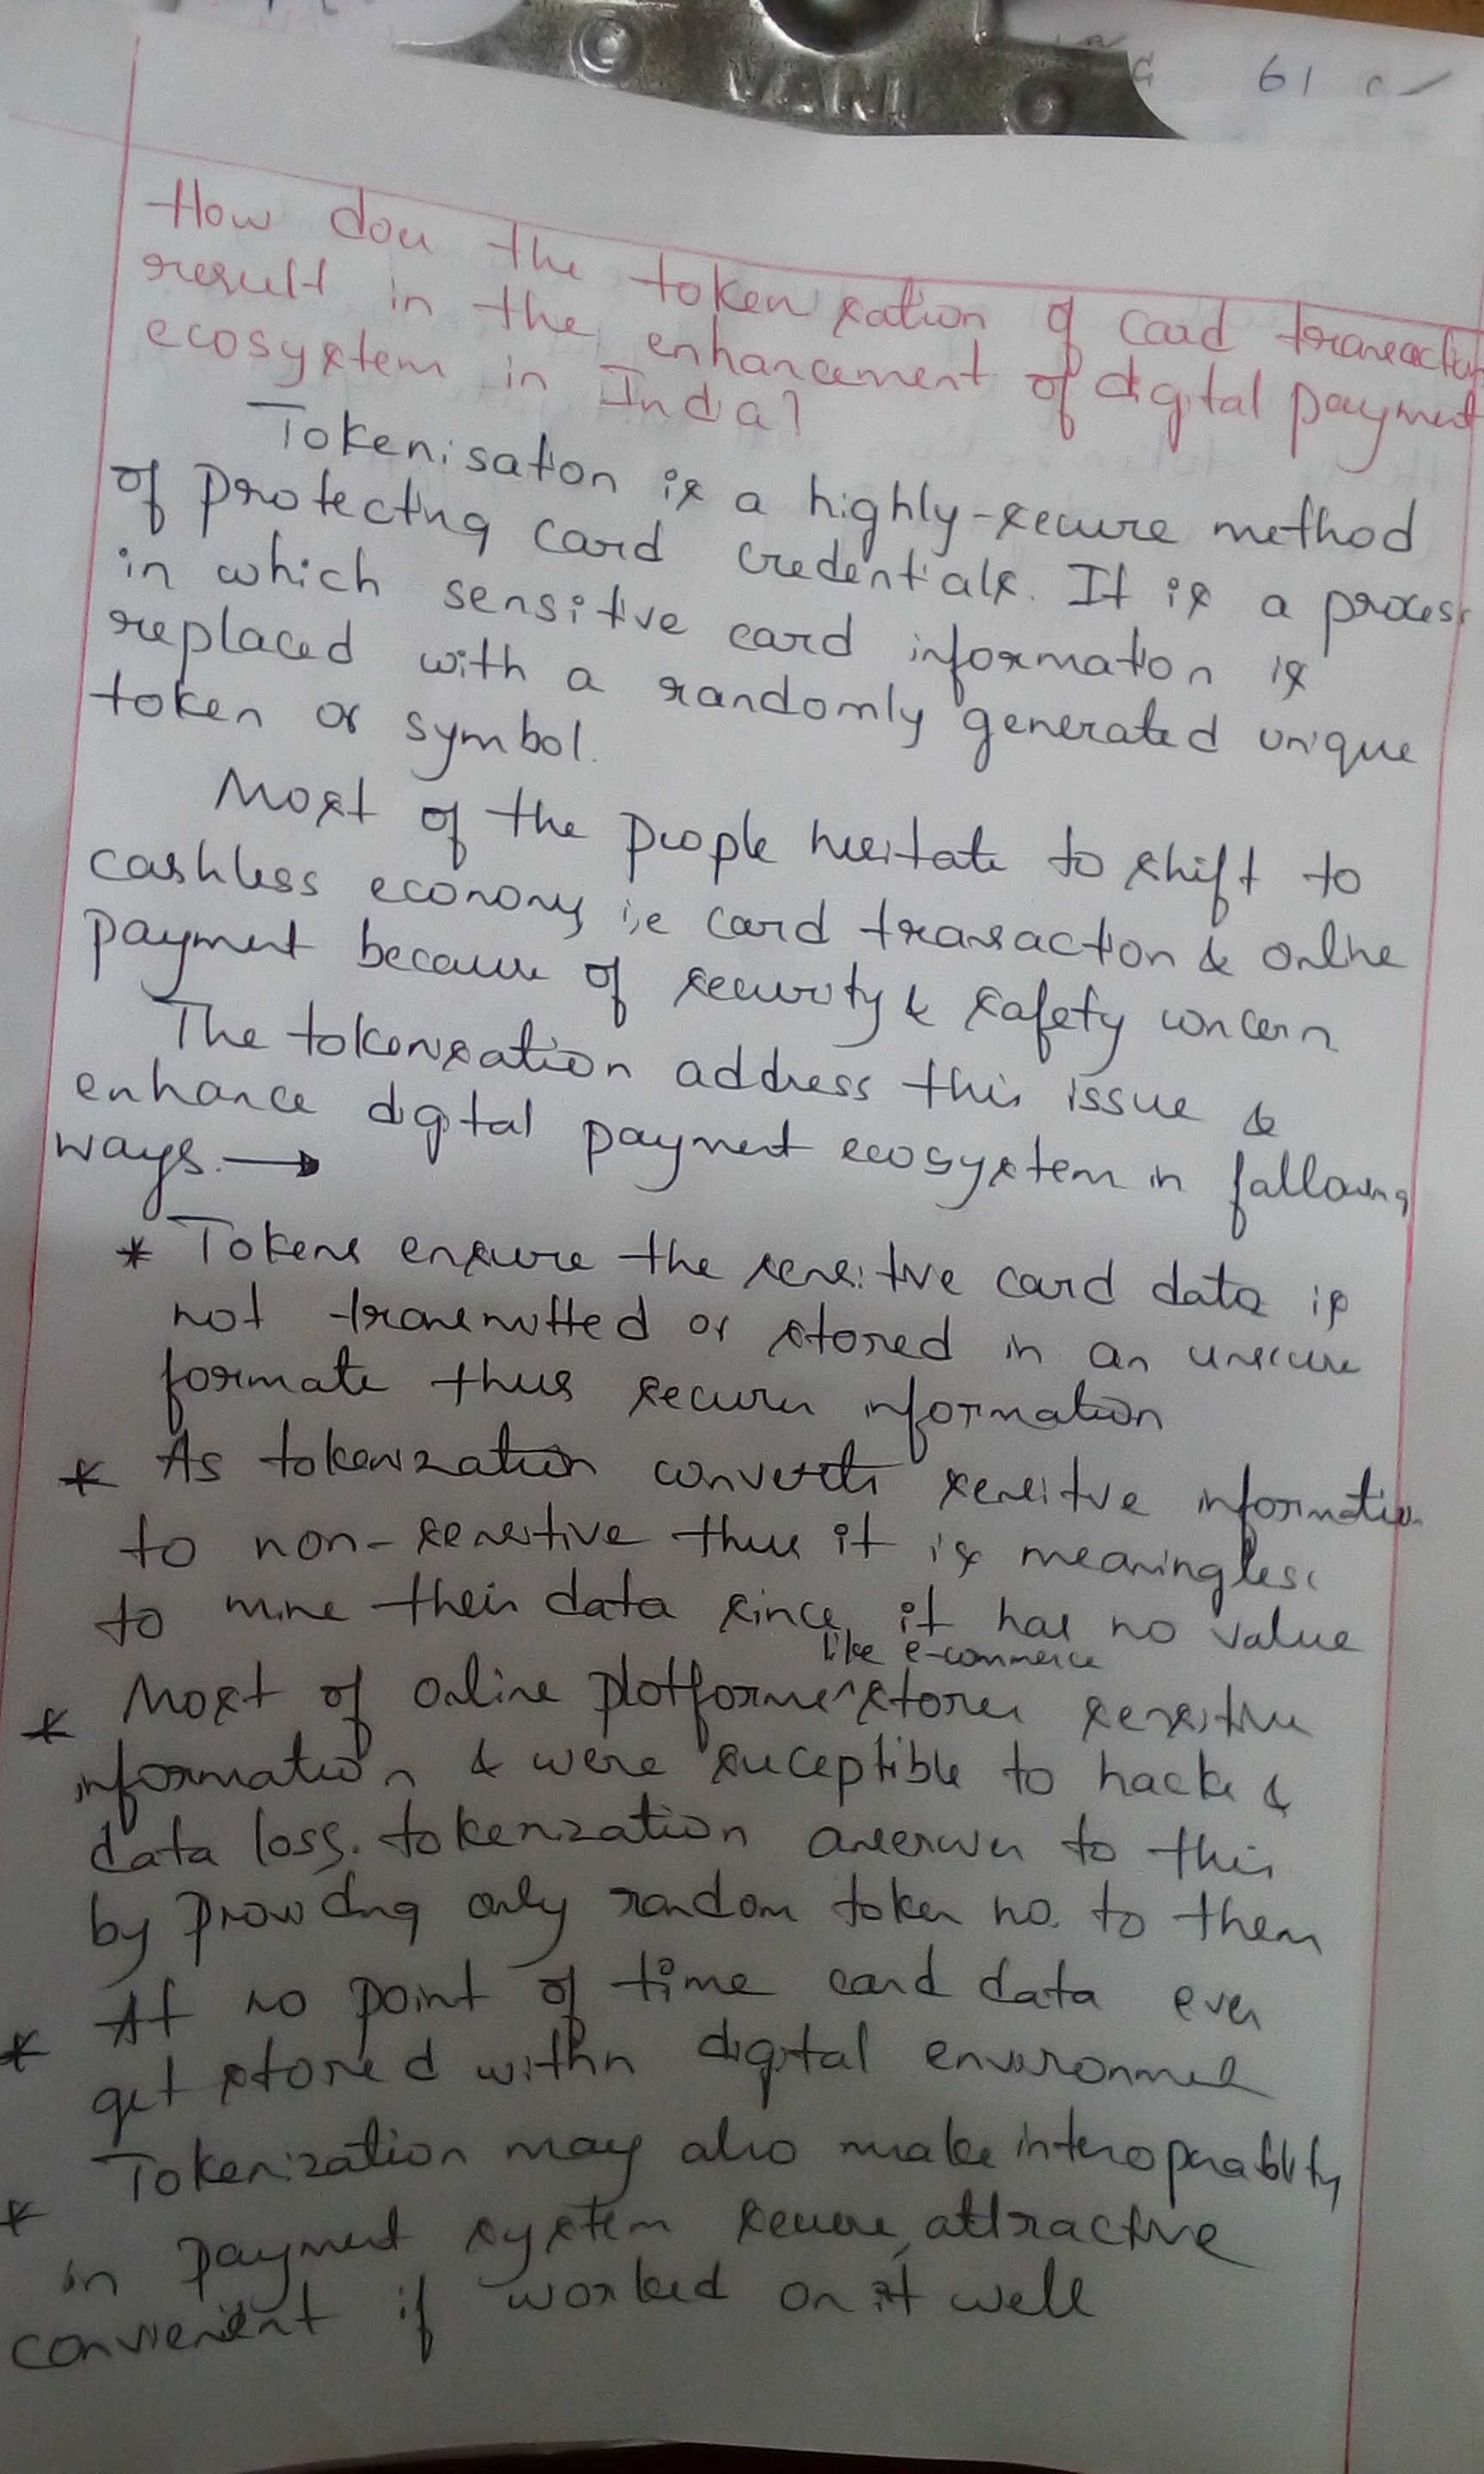 VANI
61
How does the tokenisation of card transaction
result in the enhancement of digital payment
ecosystem in India?
Tokenisation is a highly-secure method
of protecting card credentials. It is a process
in which sensitive card information is
replaced with a randomly generated unique
token or symbol.
Most of the people hesitate to shift to
cashless economy i.e card transaction & online
payment because of security & safety concern
The tokenisation address this issue &
enhance digital payment ecosystem in following
ways. →
* Tokens ensure the sensitive card data is
not transmitted or stored in an unsecure
formate thus secures information
* As tokenization converts sensitive information
to non-sensitive thus it is meaningless
to mine their data since it has no value
like e-commerce
* Most of online platforms ^ stores sensitive
information & were suceptible to hacks &
data loss. tokenization answers to this
by providing only random token no. to them
* At no point of time card data ever
get stored within digital environment
* Tokenization may also make interoperability
in payment system secure, attractive
convienient if worked on it well